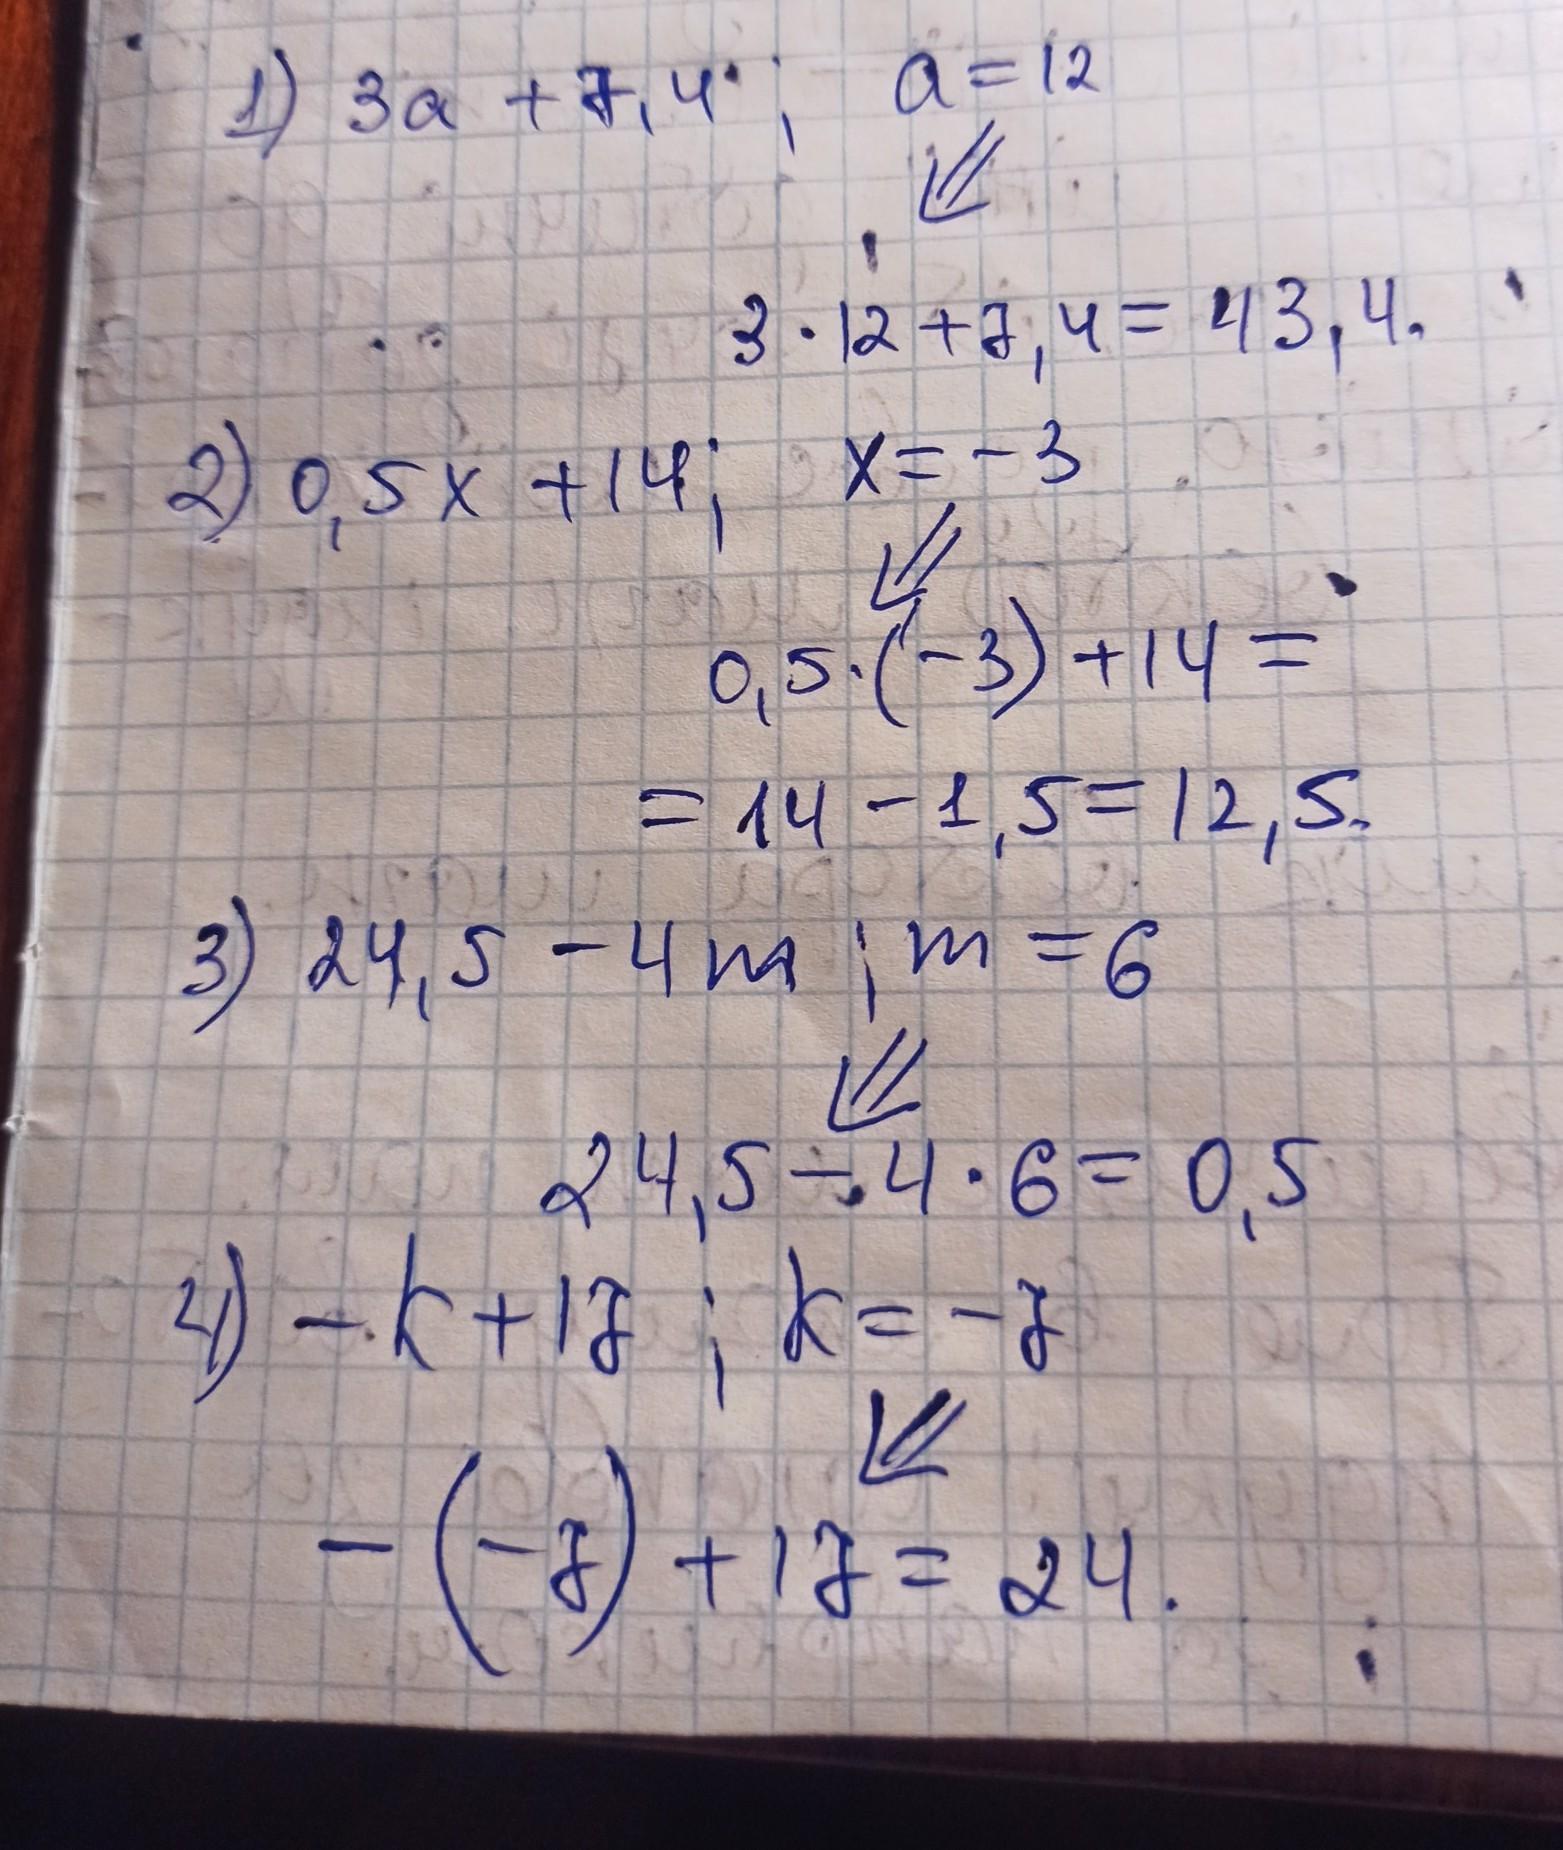 1) 3a + 7,4 ; a = 12
3 · 12 + 7,4 = 43,4.
2) 0,5x + 14; x = -3
0,5 · (-3) + 14 =
= 14 - 1,5 = 12,5.
3) 24,5 - 4m ; m = 6
24,5 - 4 · 6 = 0,5
4) - k + 17 ; k = -7
- (-7) + 17 = 24.